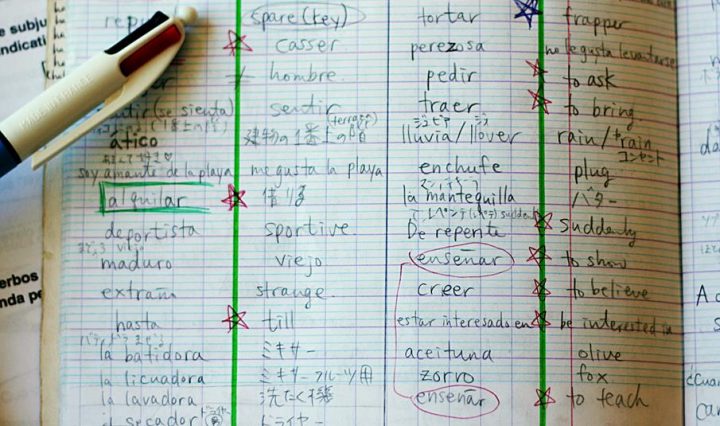 spare (key) tortar frapper
casser perezosa no le gusta levantarse
hombre pedir to ask
(se sienta) sentir traer to bring
ático 建物の1番上の階 (terraza) lluvia / llover rain / to rain
soy amante de la playa me gusta la playa enchufe plug コンセント
alquilar 借りる la mantequilla バター
deportista sportive. De repente suddenly
maduro viejo enseñar to show
extraña strange. creer to believe
hasta till estar interesado en be interested in
la batidora ミキサー aceituna olive
la licuadora ミキサーフルーツ用 zorro fox
la lavadora 洗たく機 enseñar to teach
el secador ドライヤー
e subju
ndicati
erbos
nda pe